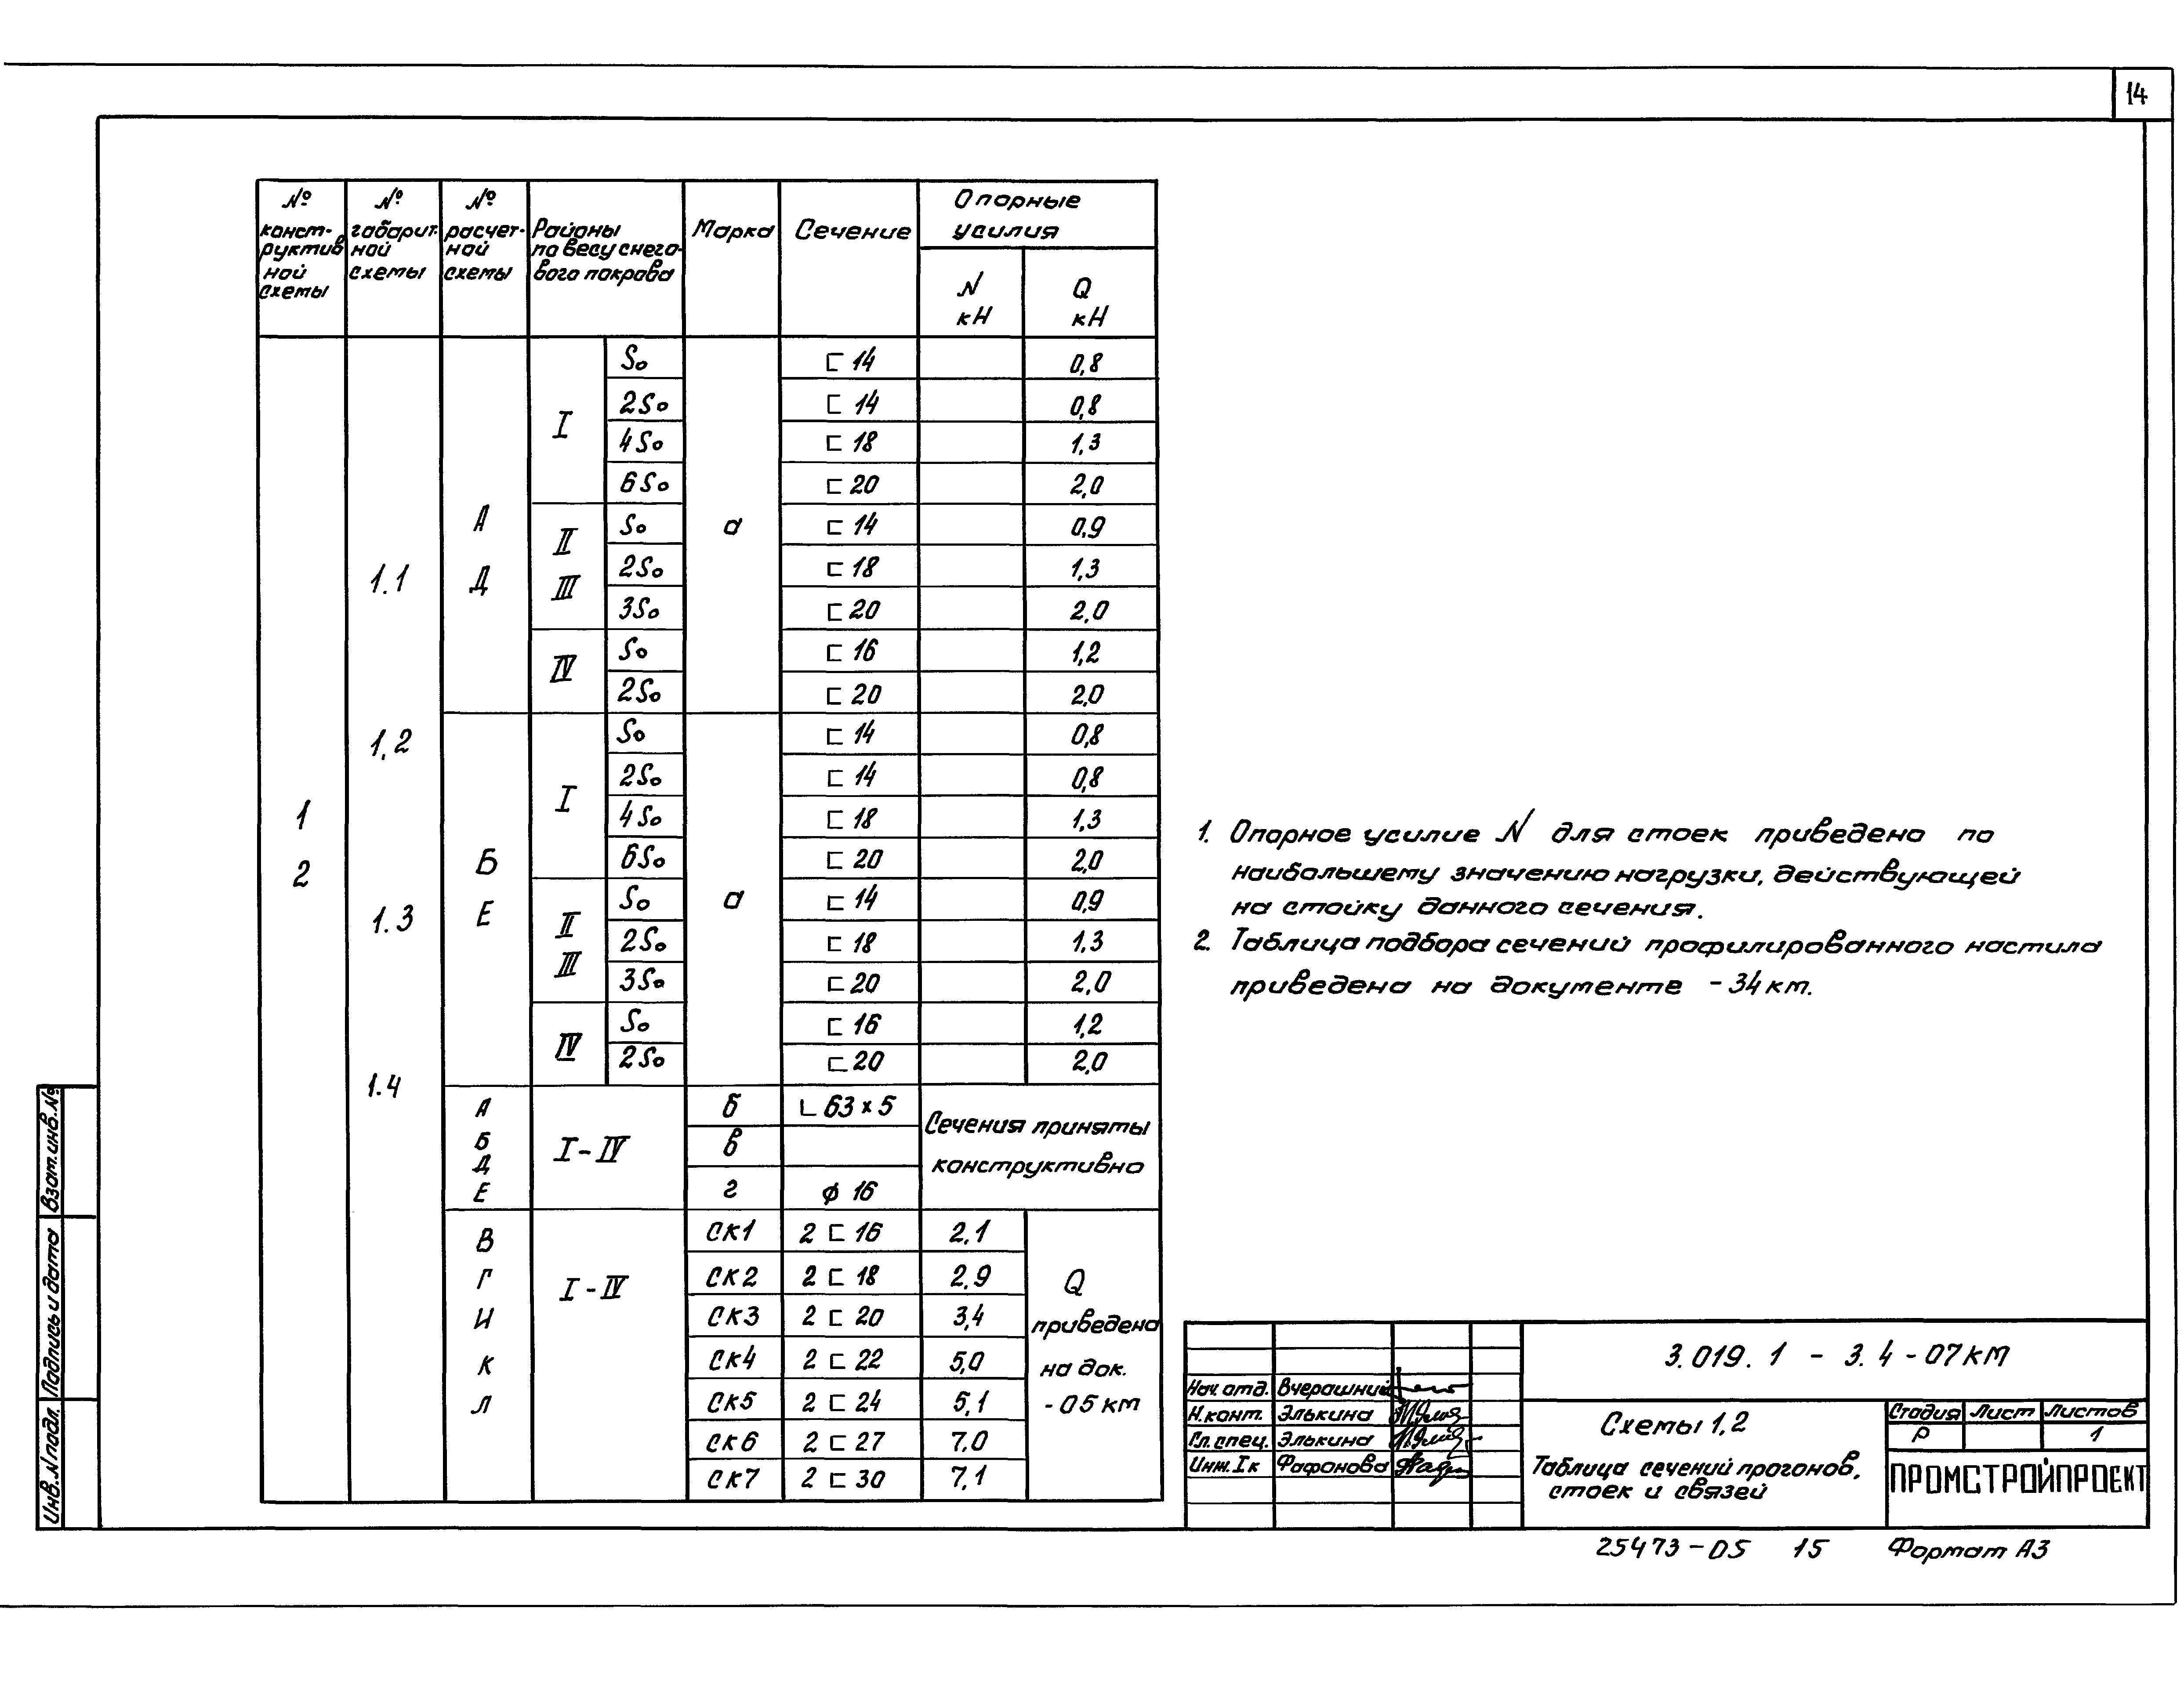 14
№ конст- руктив ной схемы | № габарит. ной схемы | № расчет- ной схемы | Районы по весу снего- вого покрова | Марка | Сечение | Опорные усилия
N кН | Q кН
1 2
1.1 1.2 1.3 1.4
А Д
I | S₀ | а | ⊏ 14 | 0,8
2S₀ | ⊏ 14 | 0,8
4S₀ | ⊏ 18 | 1,3
6S₀ | ⊏ 20 | 2,0
II III | S₀ | ⊏ 14 | 0,9
2S₀ | ⊏ 18 | 1,3
3S₀ | ⊏ 20 | 2,0
IV | S₀ | ⊏ 16 | 1,2
2S₀ | ⊏ 20 | 2,0
Б Е
I | S₀ | а | ⊏ 14 | 0,8
2S₀ | ⊏ 14 | 0,8
4S₀ | ⊏ 18 | 1,3
6S₀ | ⊏ 20 | 2,0
II III | S₀ | ⊏ 14 | 0,9
2S₀ | ⊏ 18 | 1,3
3S₀ | ⊏ 20 | 2,0
IV | S₀ | ⊏ 16 | 1,2
2S₀ | ⊏ 20 | 2,0
А Б Д Е | I - IV | б | ∟ 63 × 5 | Сечения приняты конструктивно
в
г | ϕ 16
В Г И К Л | I - IV | СК1 | 2 ⊏ 16 | 2,1 | Q приведена на док. - 05 км
СК2 | 2 ⊏ 18 | 2,9
СК3 | 2 ⊏ 20 | 3,4
СК4 | 2 ⊏ 22 | 5,0
СК5 | 2 ⊏ 24 | 5,1
СК6 | 2 ⊏ 27 | 7,0
СК7 | 2 ⊏ 30 | 7,1
1. Опорное усилие N для стоек приведено по
наибольшему значению нагрузки, действующей
на стойку данного сечения.
2. Таблица подбора сечений профилированного настила
приведена на документе - 34 км.
Взам. инв. №
Подпись и дата
Инв. N подл.
3.019.1 - 3.4 - 07 КМ
Нач. отд. Вчерашний
Н. конт. Элькина
Гл. спец. Элькина
Инж. Iк Фафонова
Схемы 1,2
Таблица сечений прогонов,
стоек и связей
Стадия Лист Листов
Р 1
ПРОМСТРОЙПРОЕКТ
25473-05 15 Формат А3